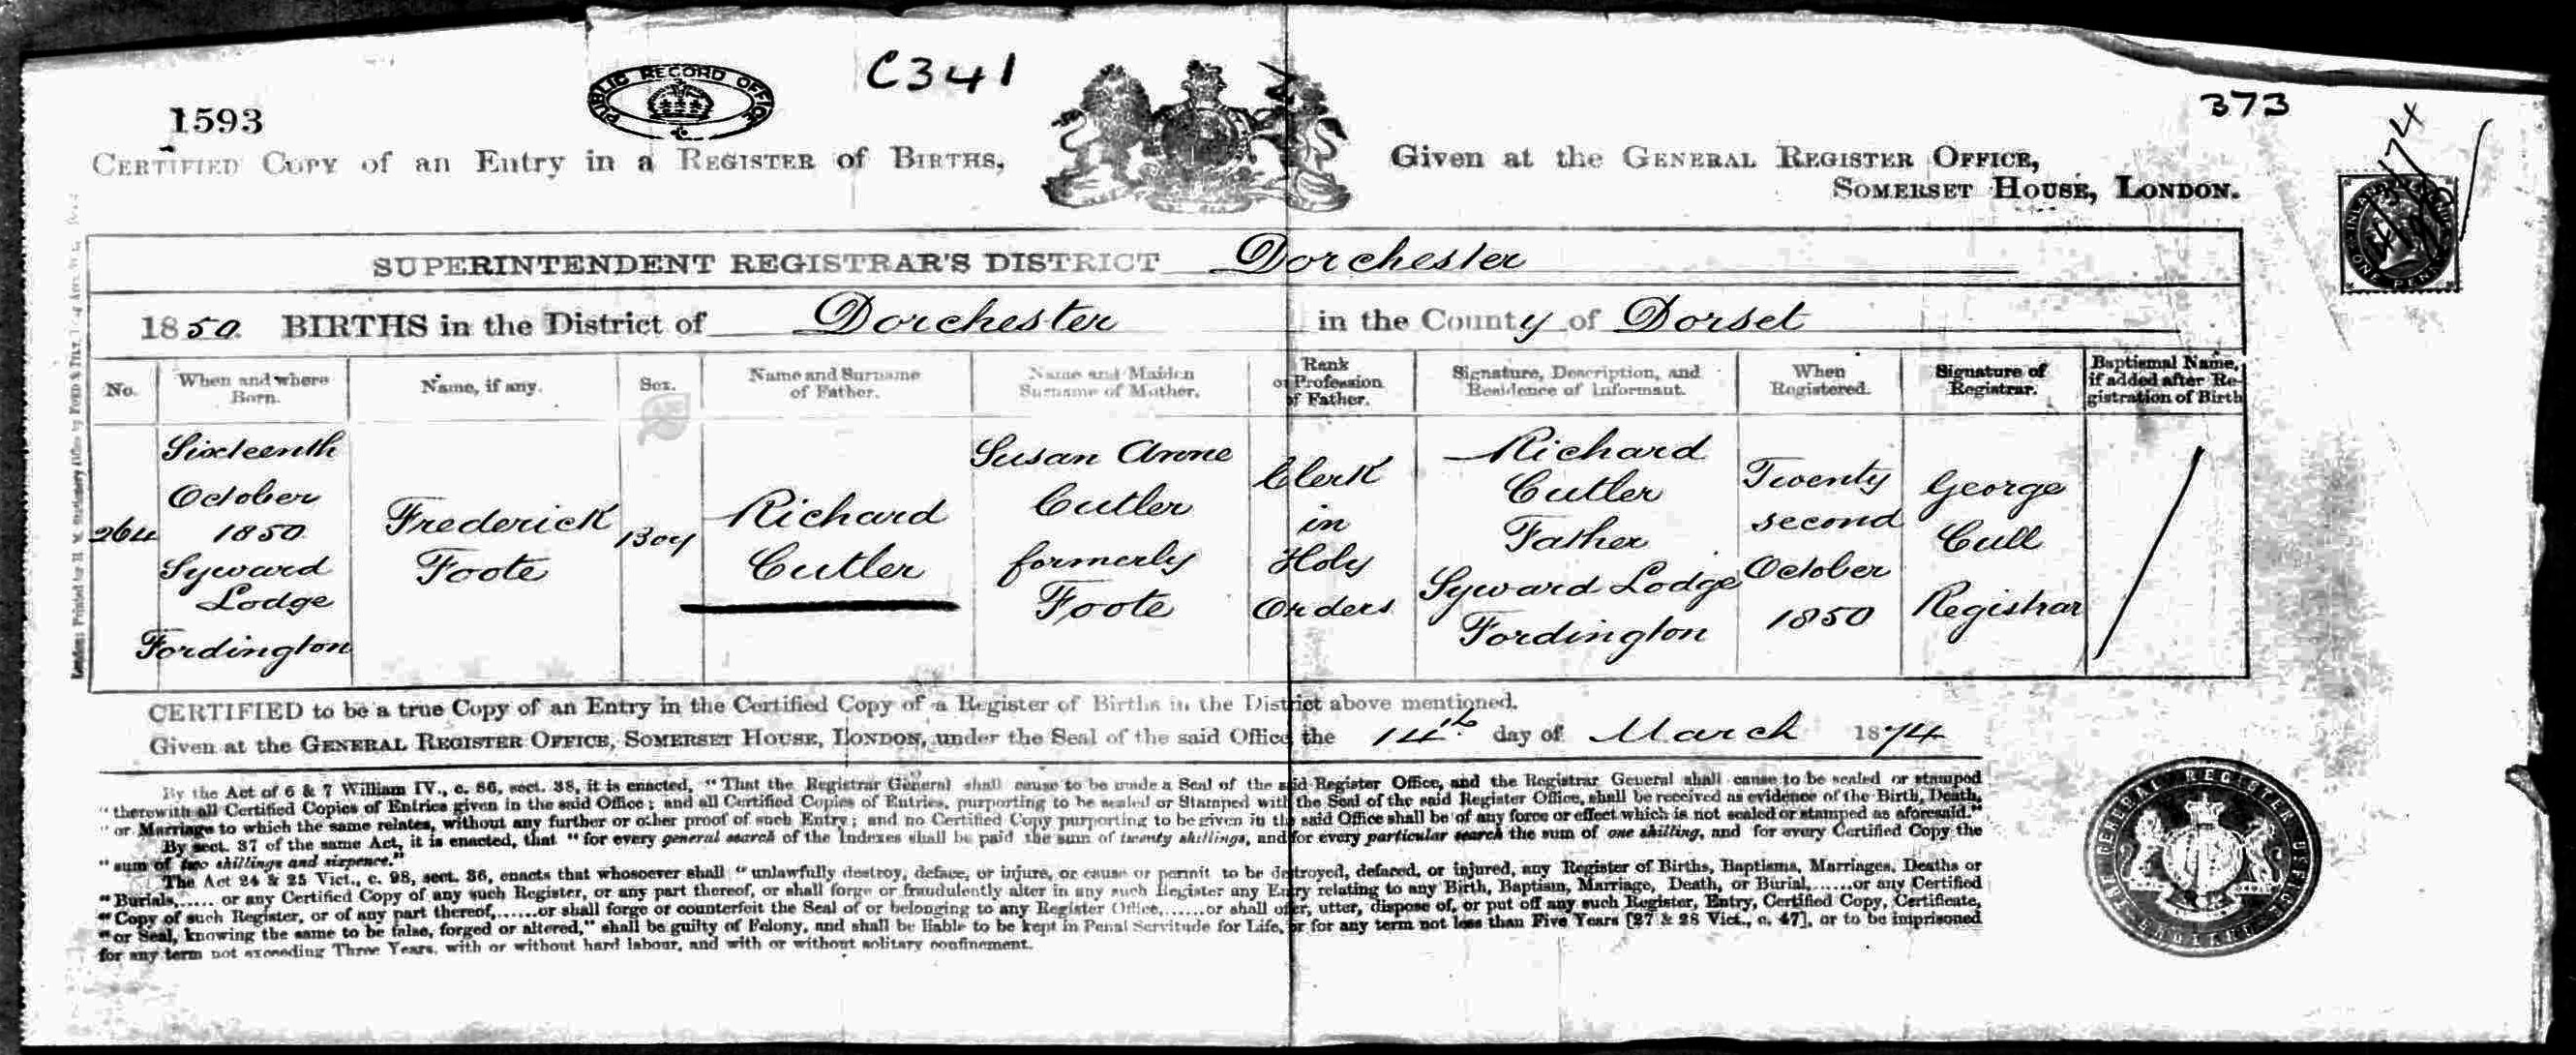 C341
PUBLIC RECORD OFFICE
1593
373
CERTIFIED COPY of an Entry in a REGISTER of BIRTHS,
Given at the GENERAL REGISTER OFFICE,
SOMERSET HOUSE, LONDON.
SUPERINTENDENT REGISTRAR'S DISTRICT Dorchester
1850. BIRTHS in the District of Dorchester in the County of Dorset
No.
When and where Born.
Name, if any.
Sex.
Name and Surname of Father.
Name and Maiden Surname of Mother.
Rank or Profession of Father.
Signature, Description, and Residence of Informant.
When Registered.
Signature of Registrar.
Baptismal Name, if added after Registration of Birth
264
Sixteenth
October
1850
Syward
Lodge
Fordington
Frederick
Foote
Boy
Richard
Cutler
Susan Anne
Cutler
formerly
Foote
Clerk
in
Holy
Orders
Richard
Cutler
Father
Syward Lodge
Fordington
Twenty
second
October
1850
George
Cull
Registrar
CERTIFIED to be a true Copy of an Entry in the Certified Copy of a Register of Births in the District above mentioned.
Given at the GENERAL REGISTER OFFICE, SOMERSET HOUSE, LONDON, under the Seal of the said Office, the 14th day of March 1874
By the Act of 6 & 7 William IV., c. 86, sect. 38, it is enacted, "That the Registrar General shall cause to be made a Seal of the said Register Office, and the Registrar General shall cause to be sealed or stamped
"therewith all Certified Copies of Entries given in the said Office; and all Certified Copies of Entries, purporting to be sealed or Stamped with the Seal of the said Register Office, shall be received as evidence of the Birth, Death,
"or Marriage to which the same relates, without any further or other proof of such Entry; and no Certified Copy purporting to be given in the said Office shall be of any force or effect which is not sealed or stamped as aforesaid."
By sect. 37 of the same Act, it is enacted, that "for every general search of the Indexes shall be paid the sum of twenty shillings, and for every particular search the sum of one shilling, and for every Certified Copy the
"sum of two shillings and sixpence."
The Act 24 & 25 Vict., c. 98, sect. 36, enacts that whosoever shall "unlawfully destroy, deface, or injure, or cause or permit to be destroyed, defaced, or injured, any Register of Births, Baptisms, Marriages, Deaths or
"Burials,......or any Certified Copy of any such Register, or any part thereof, or shall forge or fraudulently alter in any such Register any Entry relating to any Birth, Baptism, Marriage, Death, or Burial,......or any Certified
"Copy of such Register, or of any part thereof,......or shall forge or counterfeit the Seal of or belonging to any Register Office,......or shall offer, utter, dispose of, or put off any such Register, Entry, Certified Copy, Certificate,
"or Seal, knowing the same to be false, forged or altered," shall be guilty of Felony, and shall be liable to be kept in Penal Servitude for Life, or for any term not less than Five Years [27 & 28 Vict., c. 47], or to be imprisoned
for any term not exceeding Three Years, with or without hard labour, and with or without solitary confinement.